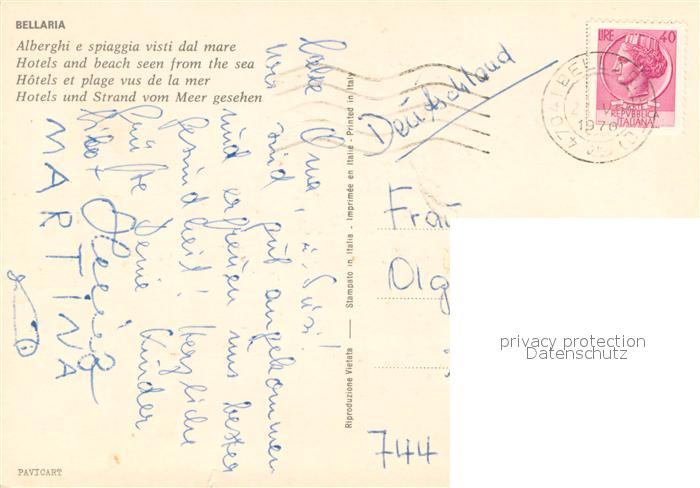 BELLARIA
Alberghi e spiaggia visti dal mare
Hotels and beach seen from the sea
Hôtels et plage vus de la mer
Hotels und Strand vom Meer gesehen
Oma,
wir sind gut angekommen
und erfreuen uns bester
Gesundheit! Herzliche
Deine Kinder
MARTINA
PAVICART
Riproduzione Vietata — Stampato in Italia - Imprimée en Italie - Printed in Italy
LIRE 40
REPVBBLICA
ITALIANA
47041 BELLA
1970
Deutschland
Frau
Olg
744
privacy protection
Datenschutz